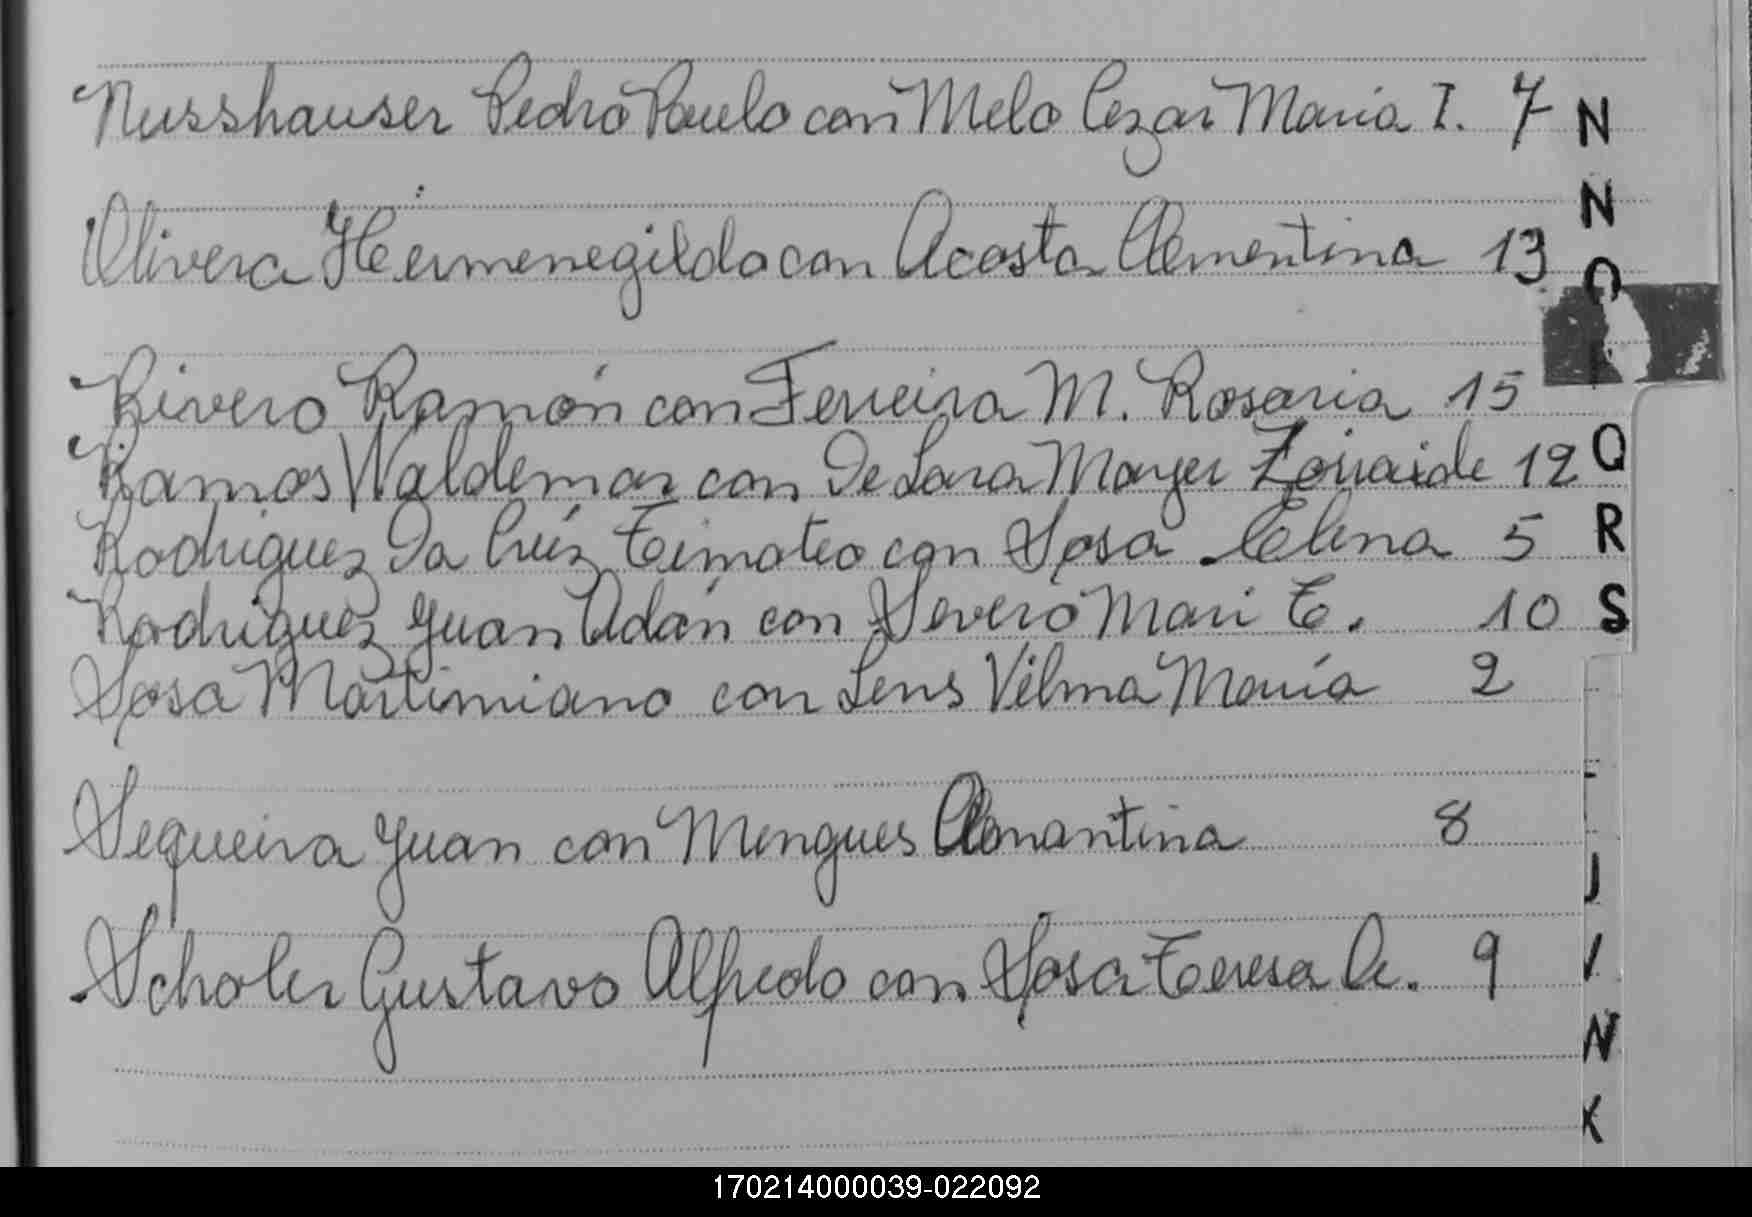 Nusshauser Pedro Paulo con Melo Cezar Maria I. 7
Olivera Hermenegildo con Acosta Clementina 13
Rivero Ramón con Ferreira M. Rosaria 15
Ramos Waldemar con De Lara Mayer Zoiraide 12
Rodriguez Da Cruz Timoteo con Sosa Elena 5
Rodriguez Juan Adán con Severo Mari T. 10
Sosa Martimiano con Lens Vilma María 2
Sequeira Juan con Mengues Amantina 8
Scholer Gustavo Alfredo con Sosa Teresa A. 9
N
N
O
Q
R
S
J
N
K
170214000039-022092